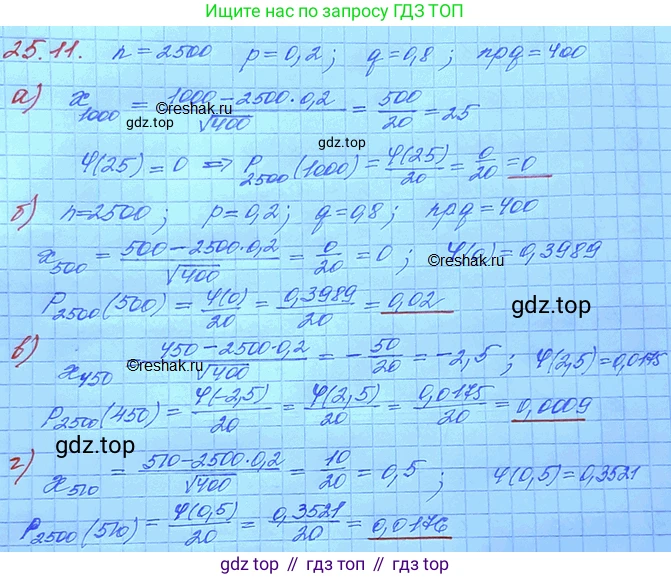 Ищите нас по запросу ГДЗ ТОП
25.11. n = 2500 p = 0,2; q = 0,8; npq = 400
а) x₁₀₀₀ = (1000 − 2500·0,2)/√400 = 500/20 = 25
©reshak.ru
φ(25) = 0 => P₂₅₀₀(1000) = φ(25)/20 = 0/20 = 0
gdz.top
б) n = 2500; p = 0,2; q = 0,8; npq = 400
x₅₀₀ = (500 − 2500·0,2)/√400 = 0/20 = 0; φ(0) = 0,3989
©reshak.ru
P₂₅₀₀(500) = φ(0)/20 = 0,3989/20 = 0,02
gdz.top
в) x₄₅₀ = (450 − 2500·0,2)/√400 = −50/20 = −2,5; φ(2,5) = 0,0175
©reshak.ru
P₂₅₀₀(450) = φ(−2,5)/20 = φ(2,5)/20 = 0,0175/20 = 0,0009
gdz.top
г) x₅₁₀ = (510 − 2500·0,2)/√400 = 10/20 = 0,5; φ(0,5) = 0,3521
P₂₅₀₀(510) = φ(0,5)/20 = 0,3521/20 = 0,0176
gdz.top // гдз.топ // gdz.top